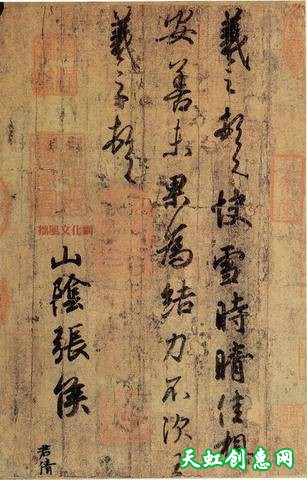 羲之頓首快雪時晴佳想
安善未果為結力不次王
羲之頓首
山陰張侯
君倩
拙風文化網
天虹创意网